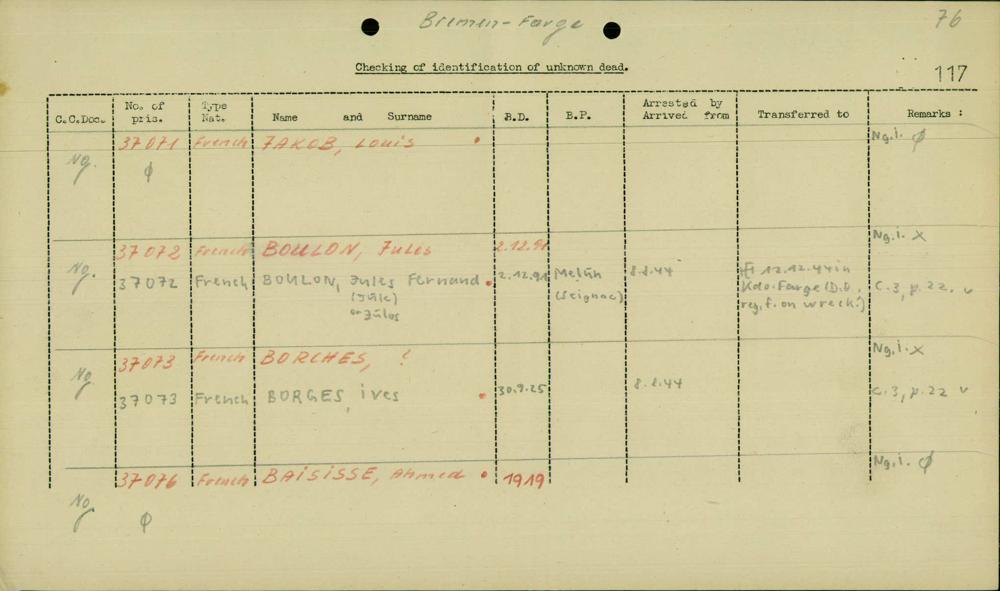 Bremen-Farge
76
Checking of identification of unknown dead.
117
C.C.Doc. No. of pris. Type Nat. Name and Surname B.D. B.P. Arrested by Arrived from Transferred to Remarks :
Ng. 37071 French JAKOB, Louis Ng.i. ϕ
ϕ
37072 French BOULON, Jules 2.12.91 Ng.i. x
Ng. 37072 French BOULON, Jules Fernand 2.12.91 Melun 8.8.44 12.12.44 in C.3, p.22. v
(Jule) (Seignac) Kdo. Farge (D.D.
or Julos reg. f. on wreck!)
37073 French BORCHES, ? Ng.i. x
Ng. 37073 French BORGES, ives 30.9.25 8.8.44 C.3, p.22 v
37076 French BAISISSE, Ahmed 1919 Ng.i. ϕ
Ng
ϕ